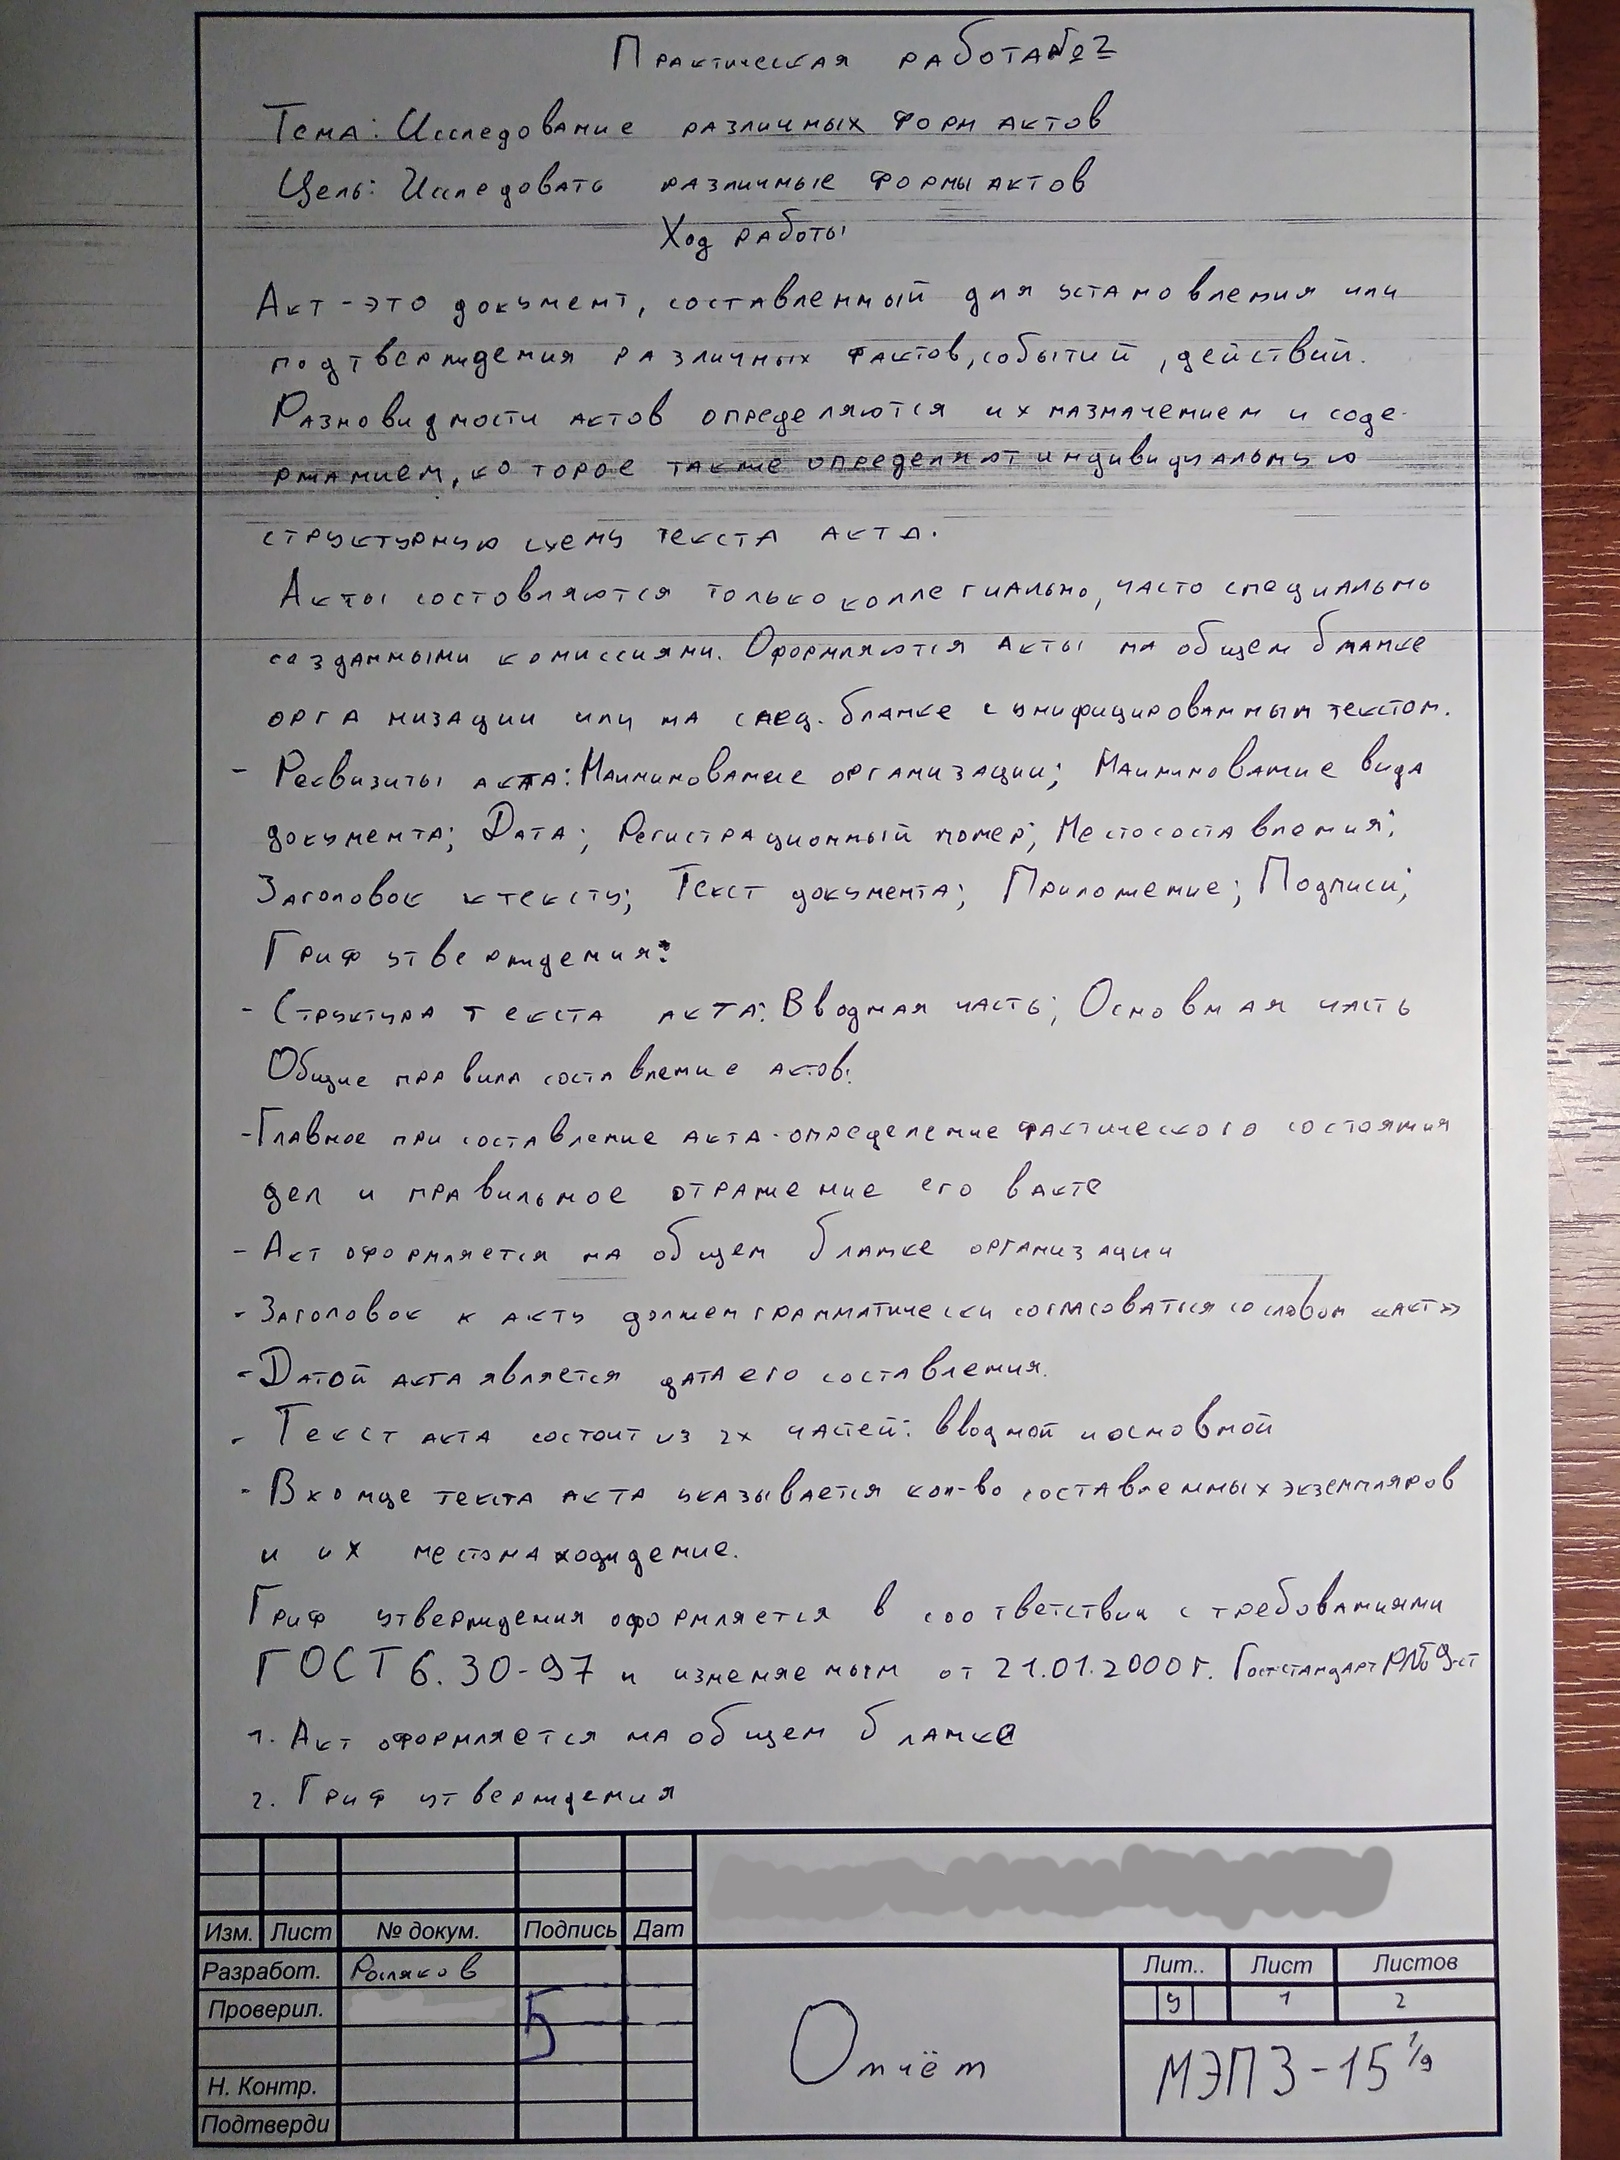 Практическая работа№2
Тема: Исследование различных форм актов
Цель: Исследовать различные формы актов
Ход работы
Акт - это документ, составленный для установления или
подтверждения различных фактов, событий, действий.
Разновидности актов определяются их назначением и соде-
ржанием, которое также определяют индивидуальную
структурную схему текста акта.
Акты состовляются только коллегиально, часто специально
созданными комиссиями. Оформляются акты на общем бланке
организации или на спец. бланке с унифицированным текстом.
- Реквизиты акта: Наиминование организации; Наиминование вида
документа; Дата; Регистрационный номер; Место составления;
Заголовок к тексту; Текст документа; Приложение; Подписи;
Гриф утверждения:
- Структура текста акта: Вводная часть; Основная часть
Общие правила составление актов:
- Главное при составление акта - определение фактического состояния
дел и правильное отражение его в акте
- Акт оформляется на общем бланке организации
- Заголовок к акту должен грамматически согласоваться со словом «акт»
- Датой акта является дата его составления.
- Текст акта состоит из 2х частей: вводной и основной
- В конце текста акта указывается кол-во составленных экземпляров
и их местонахождение.
Гриф утверждения оформляется в соответствии с требованиями
ГОСТ 6.30-97 и изменяемым от 21.01.2000г. Гостстандарт Р№9-ст
1. Акт оформляется на общем бланке
2. Гриф утверждения
Изм. Лист № докум. Подпись Дат
Разработ. Росляков
Проверил. 5
Н. Контр.
Подтверди
Отчёт
Лит.. Лист Листов
У 1 2
МЭПЗ-15 1/9